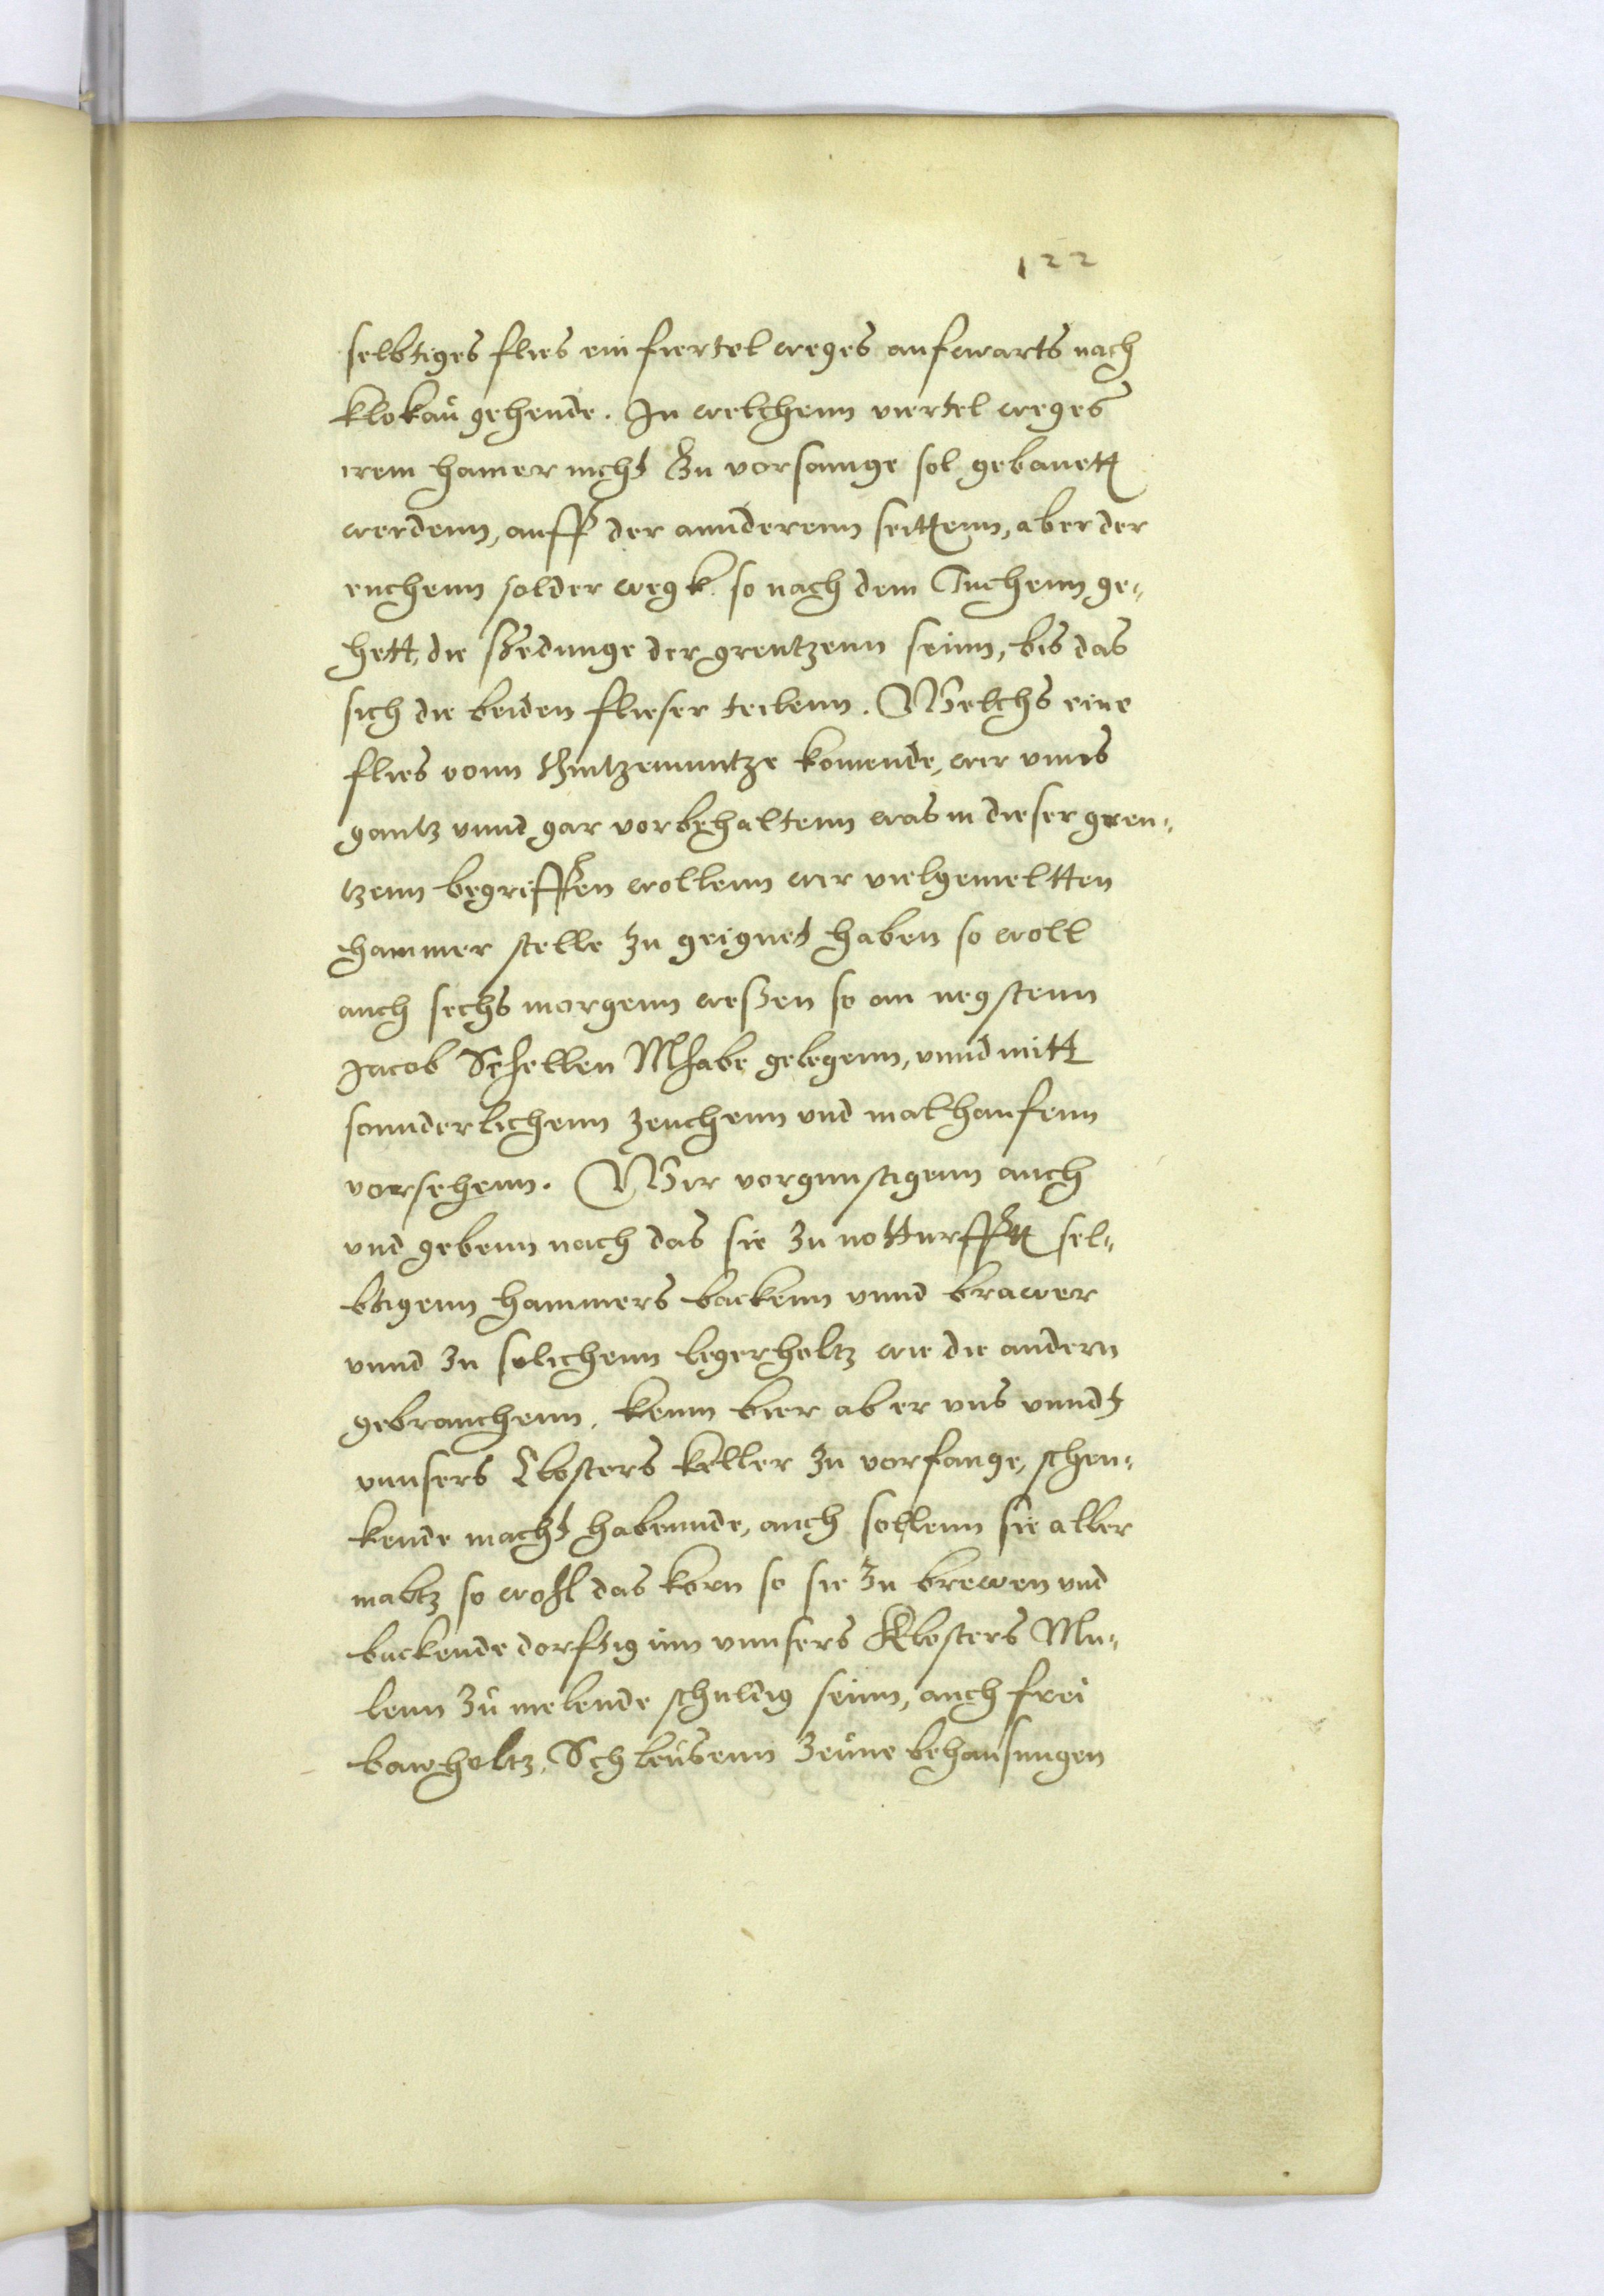 122
selbtiges flies ein fiertel weges aufwarts nach
klokaŭ gehende. In welchenn viertel weges
irem hamer nicht zu vorfannge sol gebauett
werdenn, auff der annderenn seittenn, aber der
euchenn sol der wegk so nach dem Tuchenn ge„
hett, die schedunge der grentzenn seinn, bis das
sich die beiden flieser teilenn. Welchs eine
flies vonn  komende, wir vnns
gantz vnnd gar vorbehaltenn was in dieser gren„
tzenn begriffen wollenn wir vielgemeltten
hammer stelle zu geignet haben so woll
auch sechs morgenn weßen so am negstenn
Jacob Schellen Mhabe gelegenn, vnnd mitt
sonnderlichenn zeuchenn vnd malhaufenn
vorsehenn. Wir vorgunstigenn auch
vnd gebenn nach das sie zu notturfftt sel„
btigenn hammers backenn vnnd brawer
vnnd zu solichenn legerholtz wie die andern
gebrauchenn. kenn bier aber vns vnndt
vnnsers Closters keller zu vorfange, schen„
kende macht habennde, auch sollenn sie aller
maltz so wohl das korn so sie zu brewen vnd
backende dorftig inn vnnsers Klosters Mu„
lenn zŭ melende schuldig seinn, auch frei
bawholtz, Schleŭsenn zeŭne behausungen